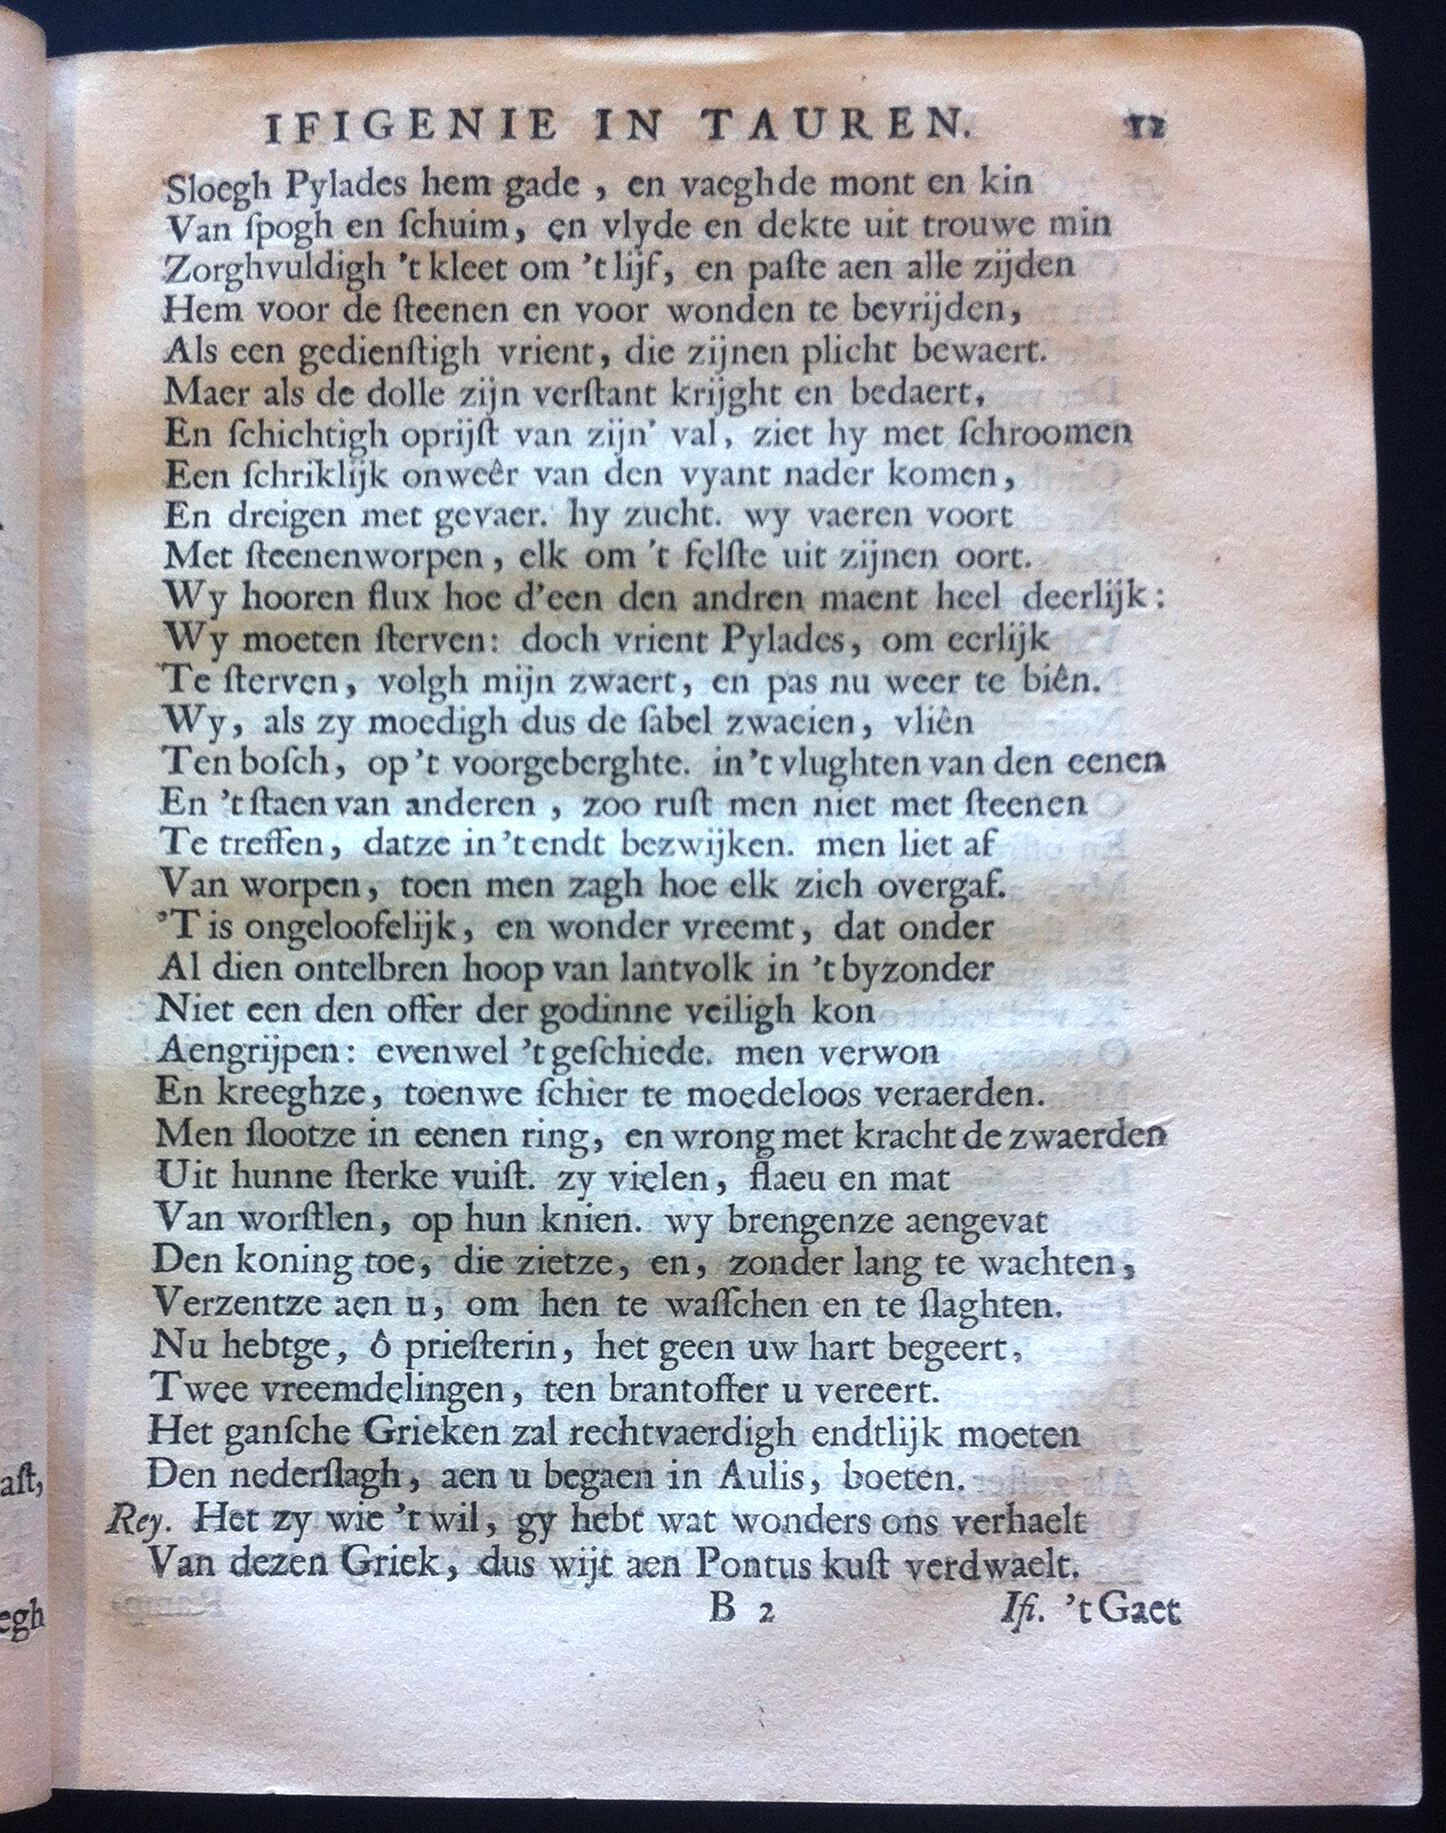 IFIGENIE IN TAUREN. 12
Sloegh Pylades hem gade, en vaeghde mont en kin
Van ſpogh en ſchuim, en vlyde en dekte uit trouwe min
Zorghvuldigh 't kleet om 't lijf, en paſte aen alle zijden
Hem voor de ſteenen en voor wonden te bevrijden,
Als een gedienſtigh vrient, die zijnen plicht bewaert.
Maer als de dolle zijn verſtant krijght en bedaert,
En ſchichtigh oprijſt van zijn' val, ziet hy met ſchroomen
Een ſchriklijk onweêr van den vyant nader komen,
En dreigen met gevaer. hy zucht. wy vaeren voort
Met ſteenenworpen, elk om 't felſte uit zijnen oort.
Wy hooren flux hoe d'een den andren maent heel deerlijk:
Wy moeten ſterven: doch vrient Pylades, om eerlijk
Te ſterven, volgh mijn zwaert, en pas nu weer te biên.
Wy, als zy moedigh dus de ſabel zwaeien, vliên
Ten boſch, op 't voorgeberghte. in 't vlughten van den eenen
En 't ſtaen van anderen, zoo ruſt men niet met ſteenen
Te treffen, datze in 't endt bezwijken. men liet af
Van worpen, toen men zagh hoe elk zich overgaf.
'T is ongeloofelijk, en wonder vreemt, dat onder
Al dien ontelbren hoop van lantvolk in 't byzonder
Niet een den offer der godinne veiligh kon
Aengrijpen: evenwel 't geſchiede. men verwon
En kreeghze, toenwe ſchier te moedeloos veraerden.
Men ſlootze in eenen ring, en wrong met kracht de zwaerden
Uit hunne ſterke vuiſt. zy vielen, flaeu en mat
Van worſtlen, op hun knien. wy brengenze aengevat
Den koning toe, die zietze, en, zonder lang te wachten,
Verzentze aen u, om hen te waſſchen en te ſlaghten.
Nu hebtge, ô prieſterin, het geen uw hart begeert,
Twee vreemdelingen, ten brantoffer u vereert.
Het ganſche Grieken zal rechtvaerdigh endtlijk moeten
Den nederſlagh, aen u begaen in Aulis, boeten.
Rey. Het zy wie 't wil, gy hebt wat wonders ons verhaelt
Van dezen Griek, dus wijt aen Pontus kuſt verdwaelt.
B 2 Ifi. 't Gaet
aſt,
egh